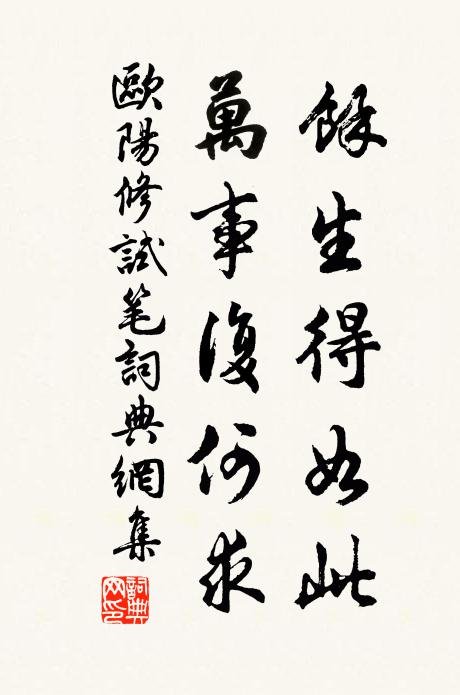 餘生得如此
萬事復何求
歐陽修試笔詞典網集
詞典網印